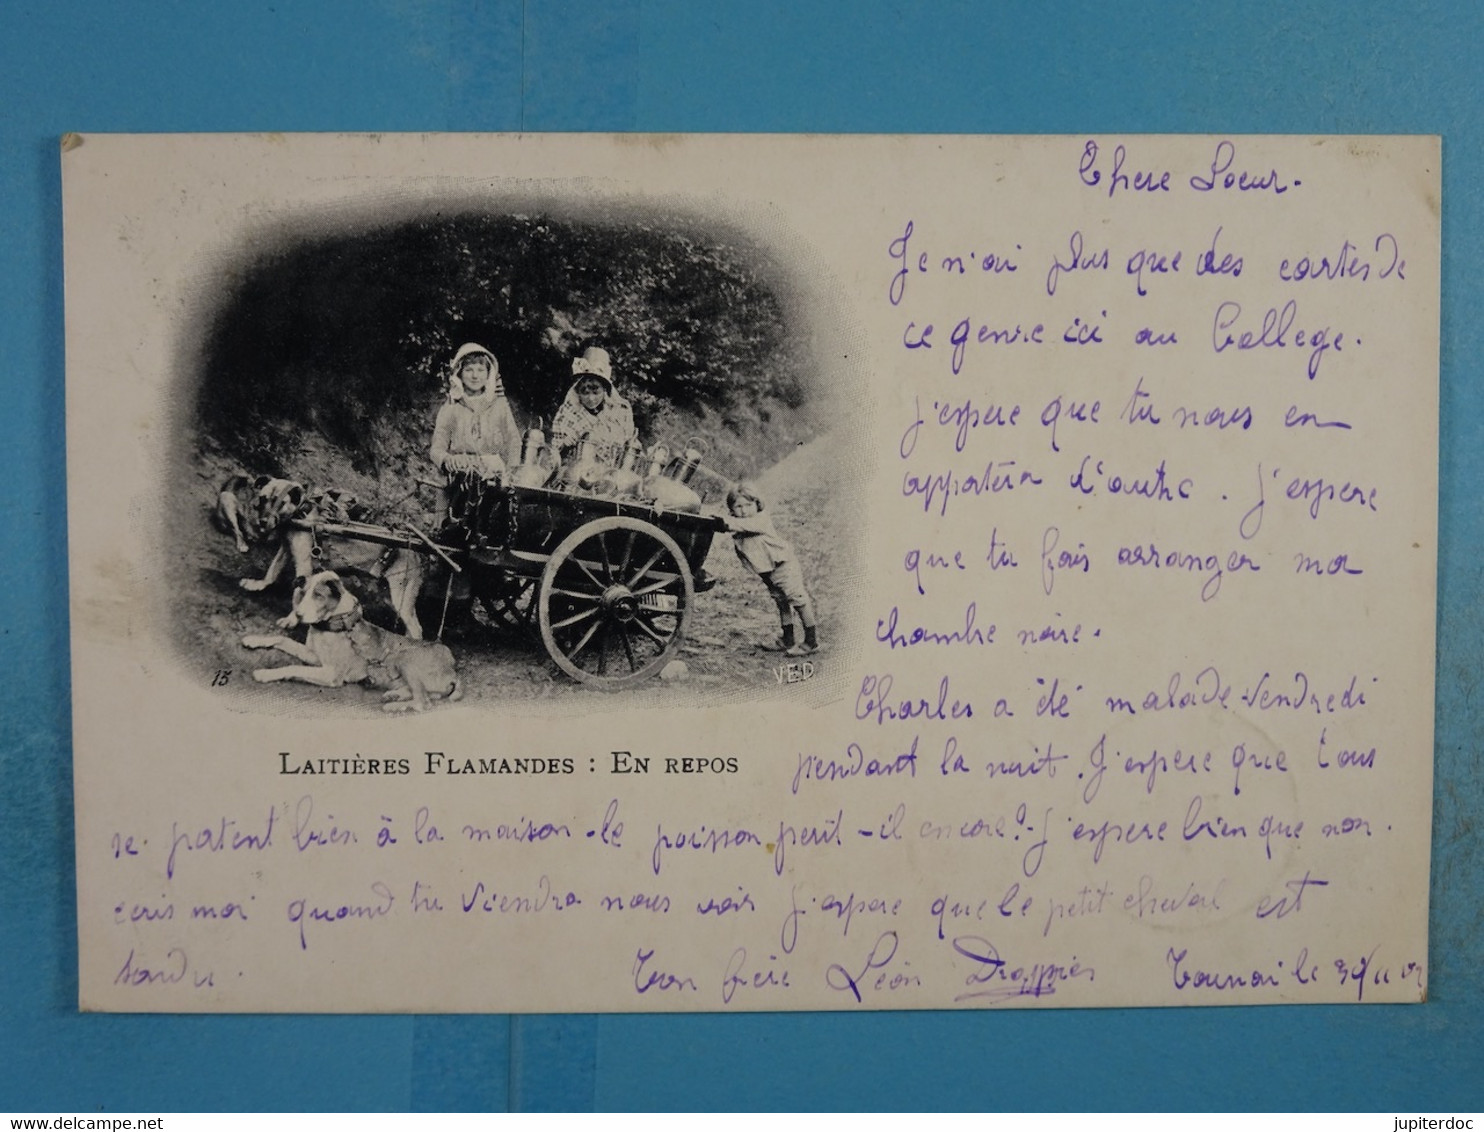 Chere Soeur.
Je n'ai plus que des cartes de
ce genre ici au College.
j'espere que tu nous en
apportera d'autre. J'espere
que tu fais arranger ma
chambre noire.
Charles a été malade vendredi
pendant la nuit. J'espere que tous
se portent bien à la maison. le poisson perit-il encore? J'espere bien que non.
ecris moi quand tu viendra nous voir j'espere que le petit cheval est
tondu.
Ton frère Léon Tournai le 30/11
13
VED
LAITIÈRES FLAMANDES : EN REPOS
jupiterdoc